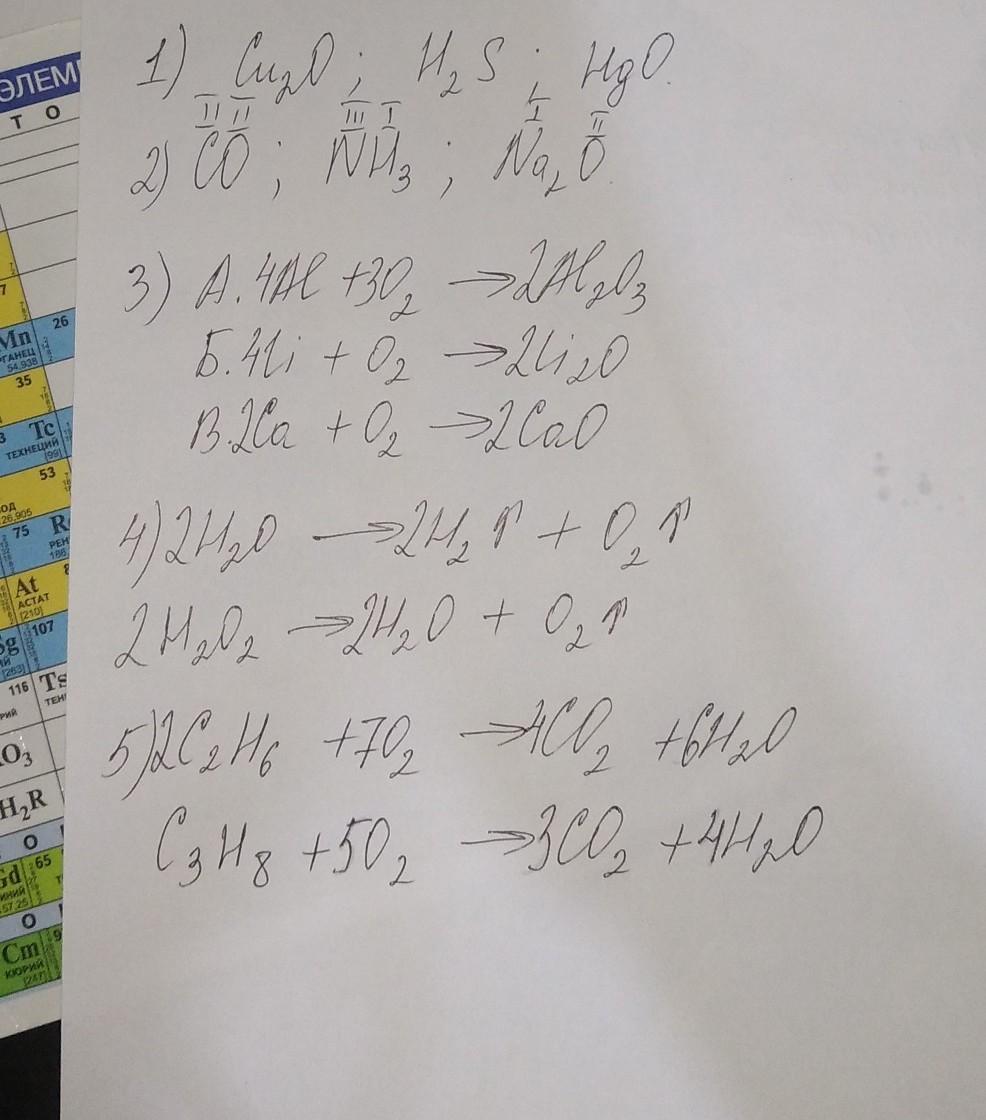 ЭЛЕМ
Т О
7
Mn 26
ГАНЕЦ
54,938
35
Tc
ТЕХНЕЦИЙ
[99]
53
ОД
26,905
75 R
РЕН
186
At 8
АСТАТ
[210]
Sg 107
ИЙ
[263]
116 Ts
РИЙ ТЕН
RO₃
H₂R
О
Gd 65
ИНИЙ
57,25
О
Cm 9
КЮРИЙ
[247]
1) Cu₂O ; H₂S ; HgO.
II II III I I II
2) CO ; NH₃ ; Na₂O.
3) А. 4Al + 3O₂ → 2Al₂O₃
Б. 4Li + O₂ → 2Li₂O
В. 2Ca + O₂ → 2CaO
4) 2H₂O → 2H₂↑ + O₂↑
2H₂O₂ → 2H₂O + O₂↑
5) 2C₂H₆ + 7O₂ → 4CO₂ + 6H₂O
C₃H₈ + 5O₂ → 3CO₂ + 4H₂O